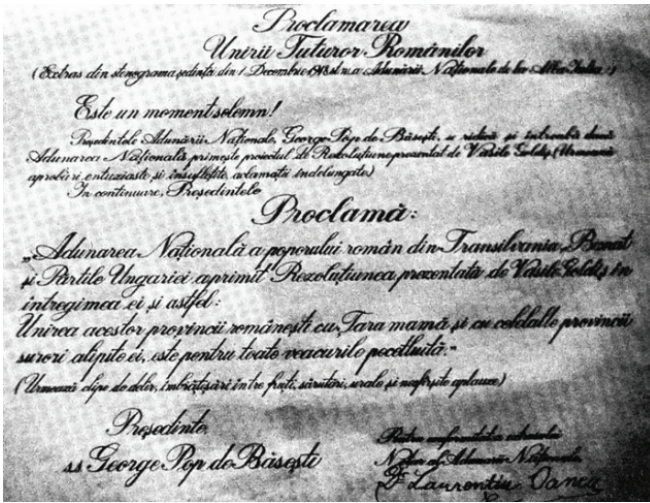 Proclamarea
Unirii Tuturor Românilor
(Extras din stenograma ședinței din 1 Decembrie 1918 st.n. a Adunării Naționale de la Alba Iulia)
Este un moment solemn!
Președintele Adunării Naționale, George Pop de Băsești, se ridică și întreabă dacă
Adunarea Națională primește proiectul de Rezoluțiune prezentat de Vasile Goldiș (Urmează
aprobări entuziaste și însuflețite, aclamații îndelungate)
În continuare, Președintele
Proclamă:
„Adunarea Națională a poporului român din Transilvania, Banat
și Părțile Ungariei a primit Rezoluțiunea prezentată de Vasile Goldiș în
întregimea ei și astfel:
Unirea acestor provincii românești cu Țara mamă și cu celelalte provincii
surori alipite ei, este pentru toate veacurile pecetluită."
(Urmează clipe de delir, îmbrățișări între frați, sărutări, urale și nesfârșite aplauze)
Președinte,
ss George Pop de Băsești
Pentru conformitatea
Notar al Adunării Naționale
Dr Laurentiu Oancea